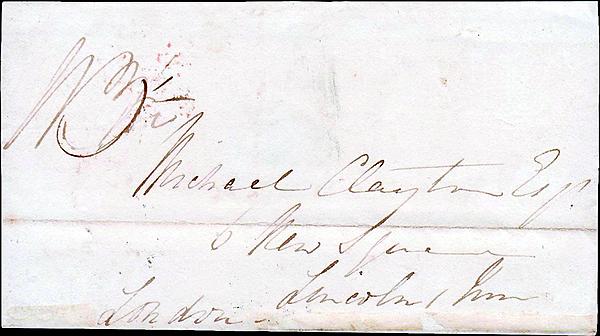 Michael Clayton Esqr
6 New Square
Lincoln's Inn
London